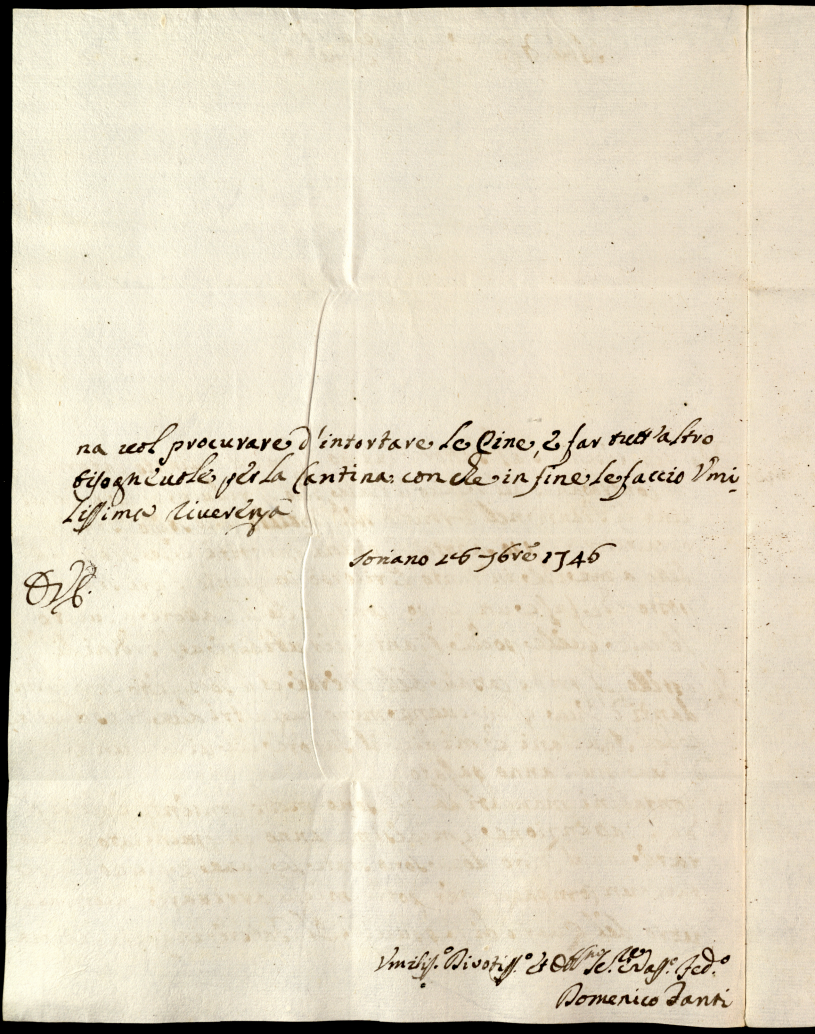 na uol procurare d'intortare le Tine, e far tutt'altro
bisogneuole per la Cantina con che in fine le faccio Vmi-
lissima riuerenza
Soriano 26 7bre 1746
Vmiliss.o Divotiss.o & Obb.mo Se.re Vass.o Fed.o
Domenico Fanti